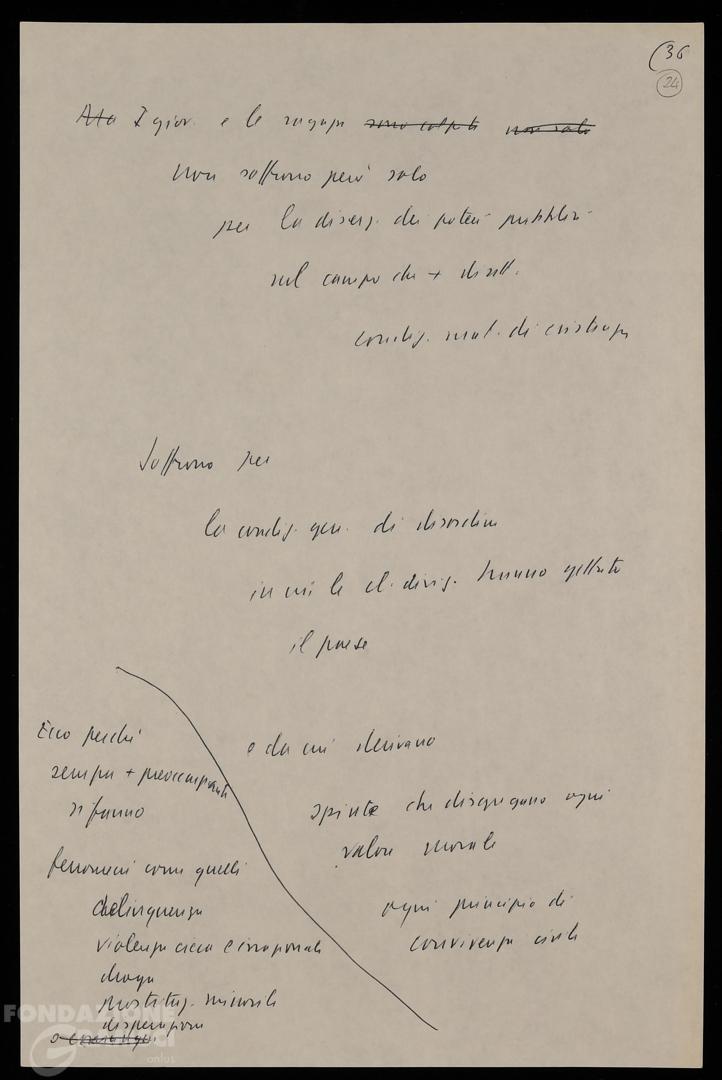 (36
24
Ma I giov. e le ragazze sono colpiti non solo
non soffrono però solo
per la diserz. dei poteri pubblici
sul campo che + dirett.
condiz. mat. di esistenza
Soffrono per
la condiz. gen. di disordine
in cui le cl. dirig. hanno gettato
il paese
e da cui derivano
spinte che disgregano ogni
valore morale
ogni principio di
convivenza civile
Ecco perché
sempre + preoccupanti
si fanno
fenomeni come quelli
delinquenza
violenza cieca e irrazionale
droga
prostituz. minorile
disperazione
o
FONDAZIONE
onlus